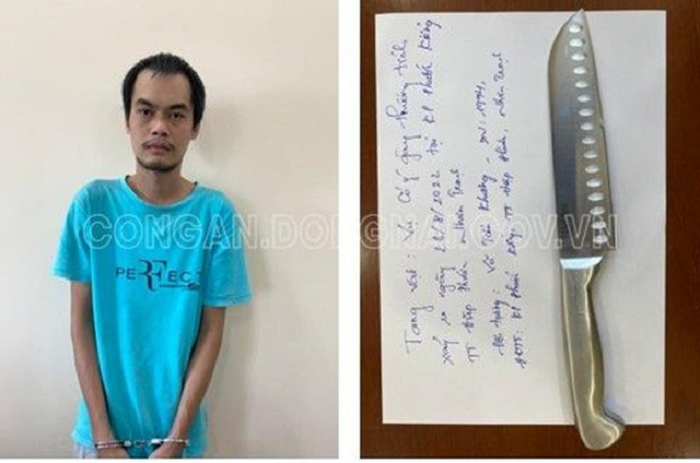 CONGAN.DONGNAI.GOV.VN
PERFECT
Tang vật: Vụ Cố ý gây thương tích
xảy ra ngày 21/8/2022 tại KP Phước
TT Hiệp Phước Nhơn Trạch
Đối tượng: Võ Khương - SN: 1994,
KP Phước TT Hiệp Phước, Nhơn Trạch